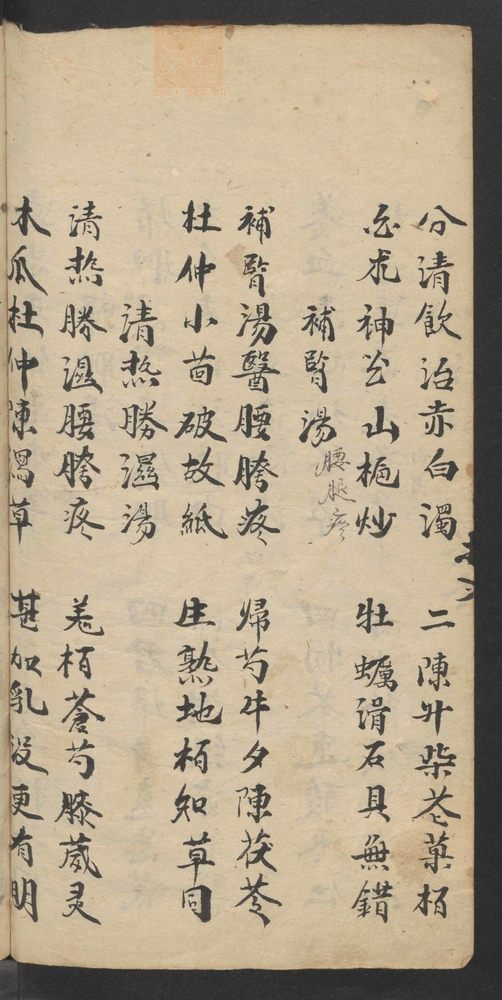 分清飲治赤白濁 二陳升柴苓藥栢
白朮神芎山梔炒 牡蠣滑石具無錯
補腎湯 腰腿疼
補腎湯醫腰胯疼 歸芍牛夕陳茯苓
杜仲小茴破故紙 生熟地栢知草同
清熱勝濕湯
清熱勝濕腰胯疼 羌栢蒼芍膝葳灵
木瓜杜仲陳瀉草 甚加乳没更有明